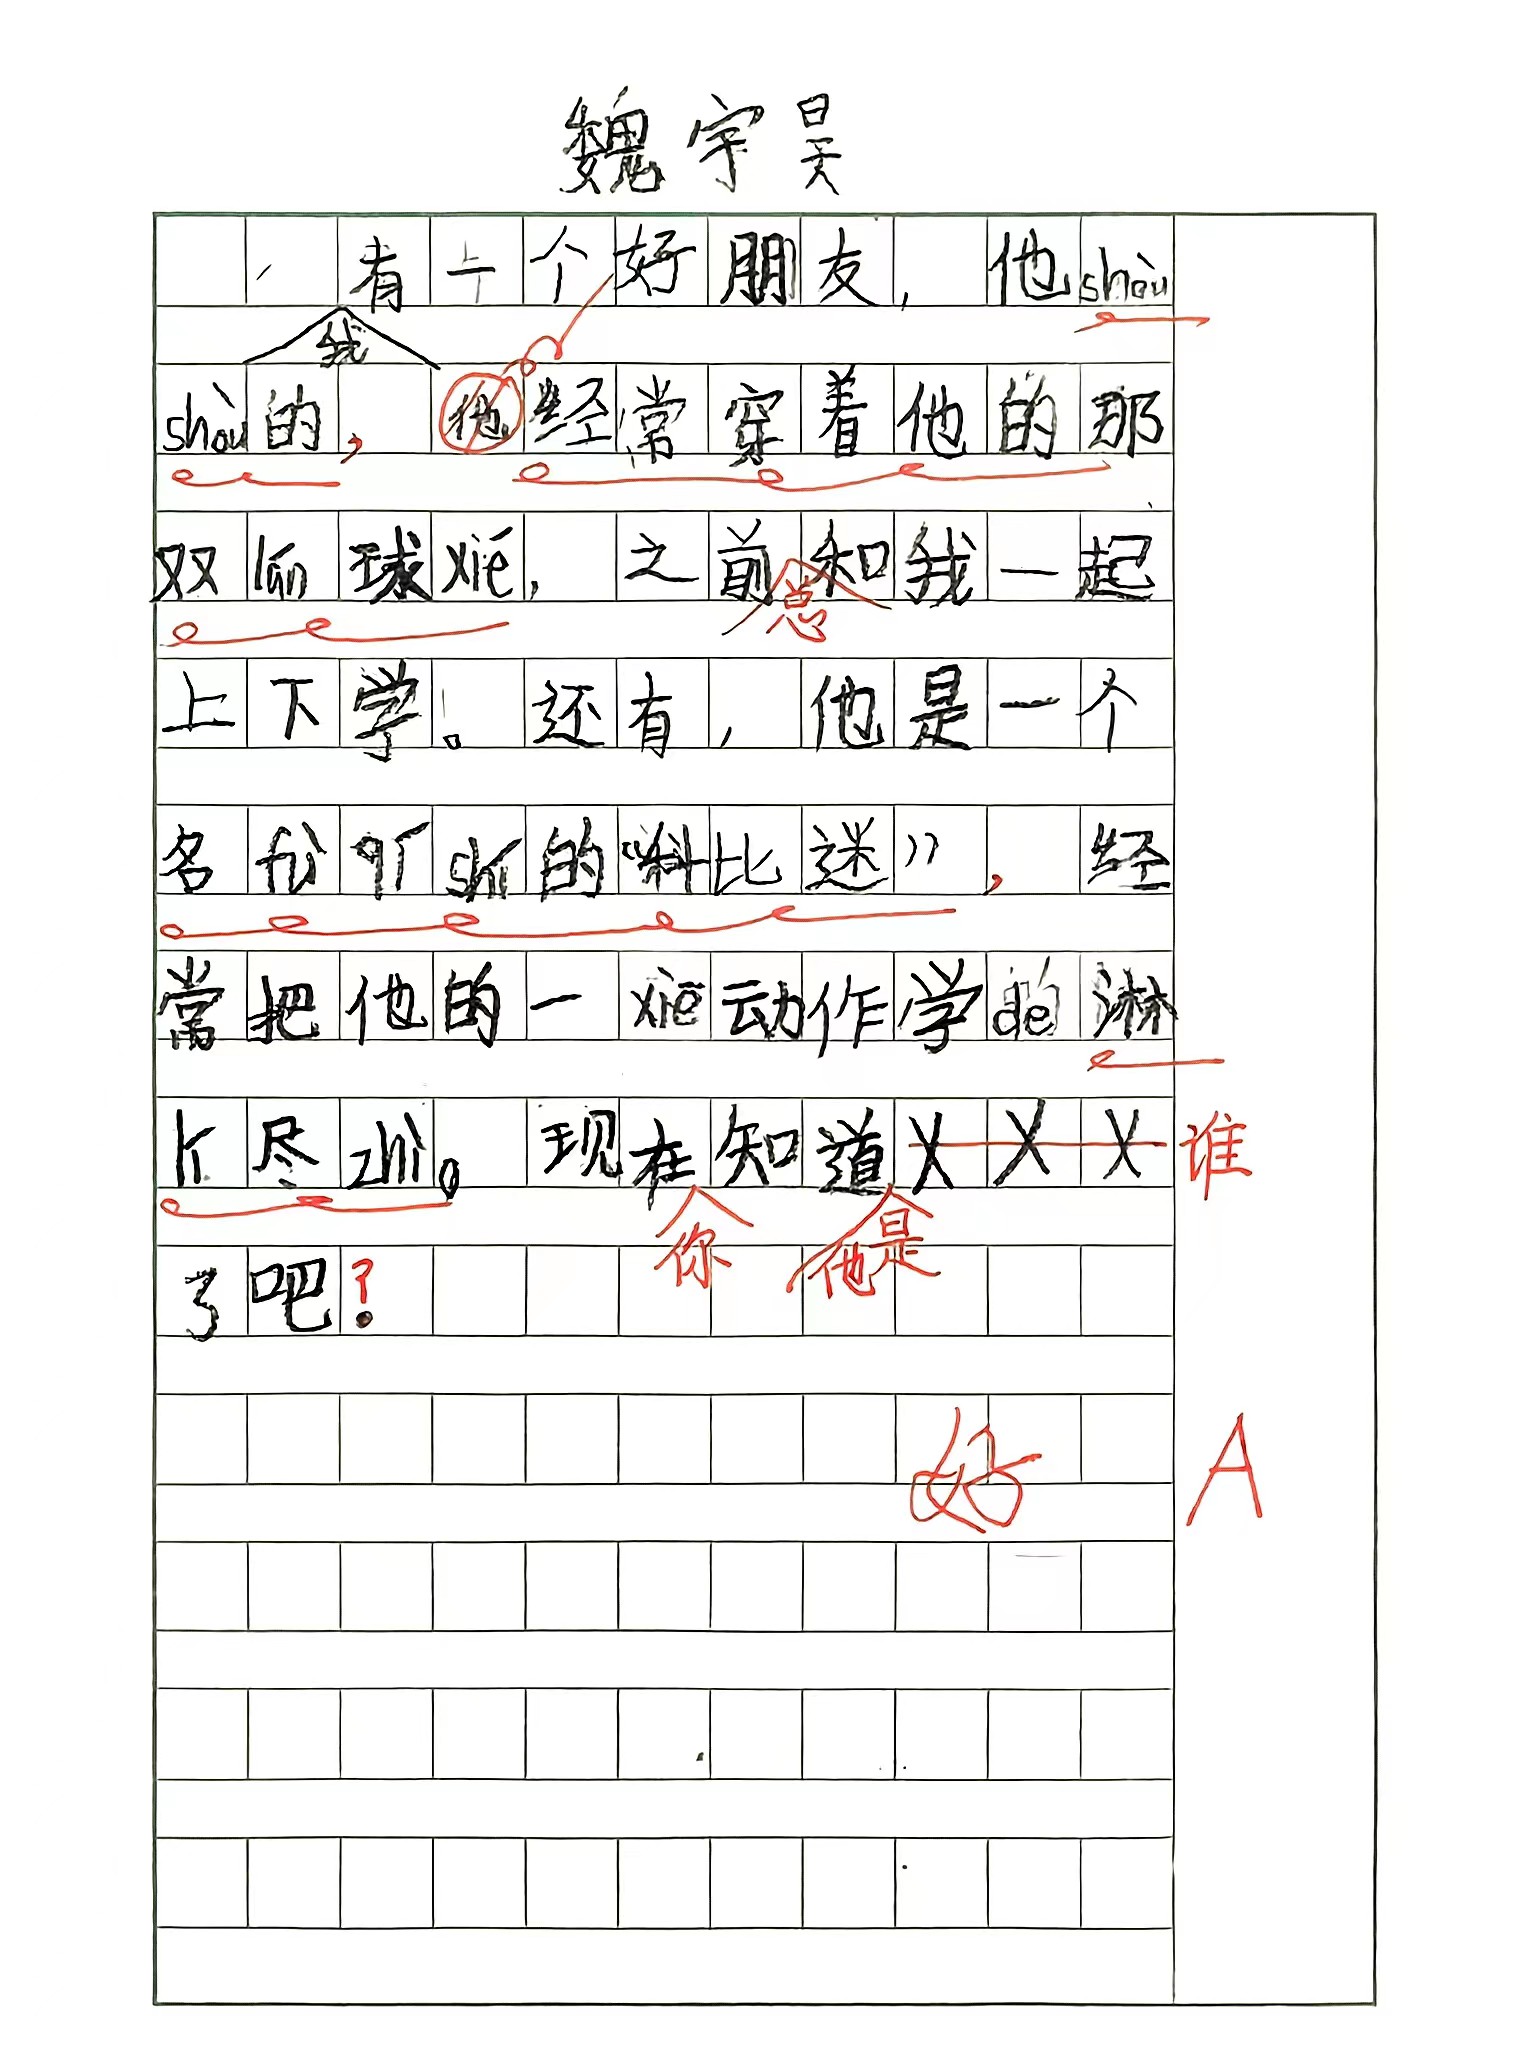 魏宇昊
有一个好朋友，他shòu
我
shòu的，他经常穿着他的那
双lán球xié，之前和我一起
总
上下学。还有，他是一个
名fù qí shí的“科比迷”，经
常把他的一xiē动作学de淋
lí尽zhì。现在知道XXX谁
你 他是
了吧？
好 A